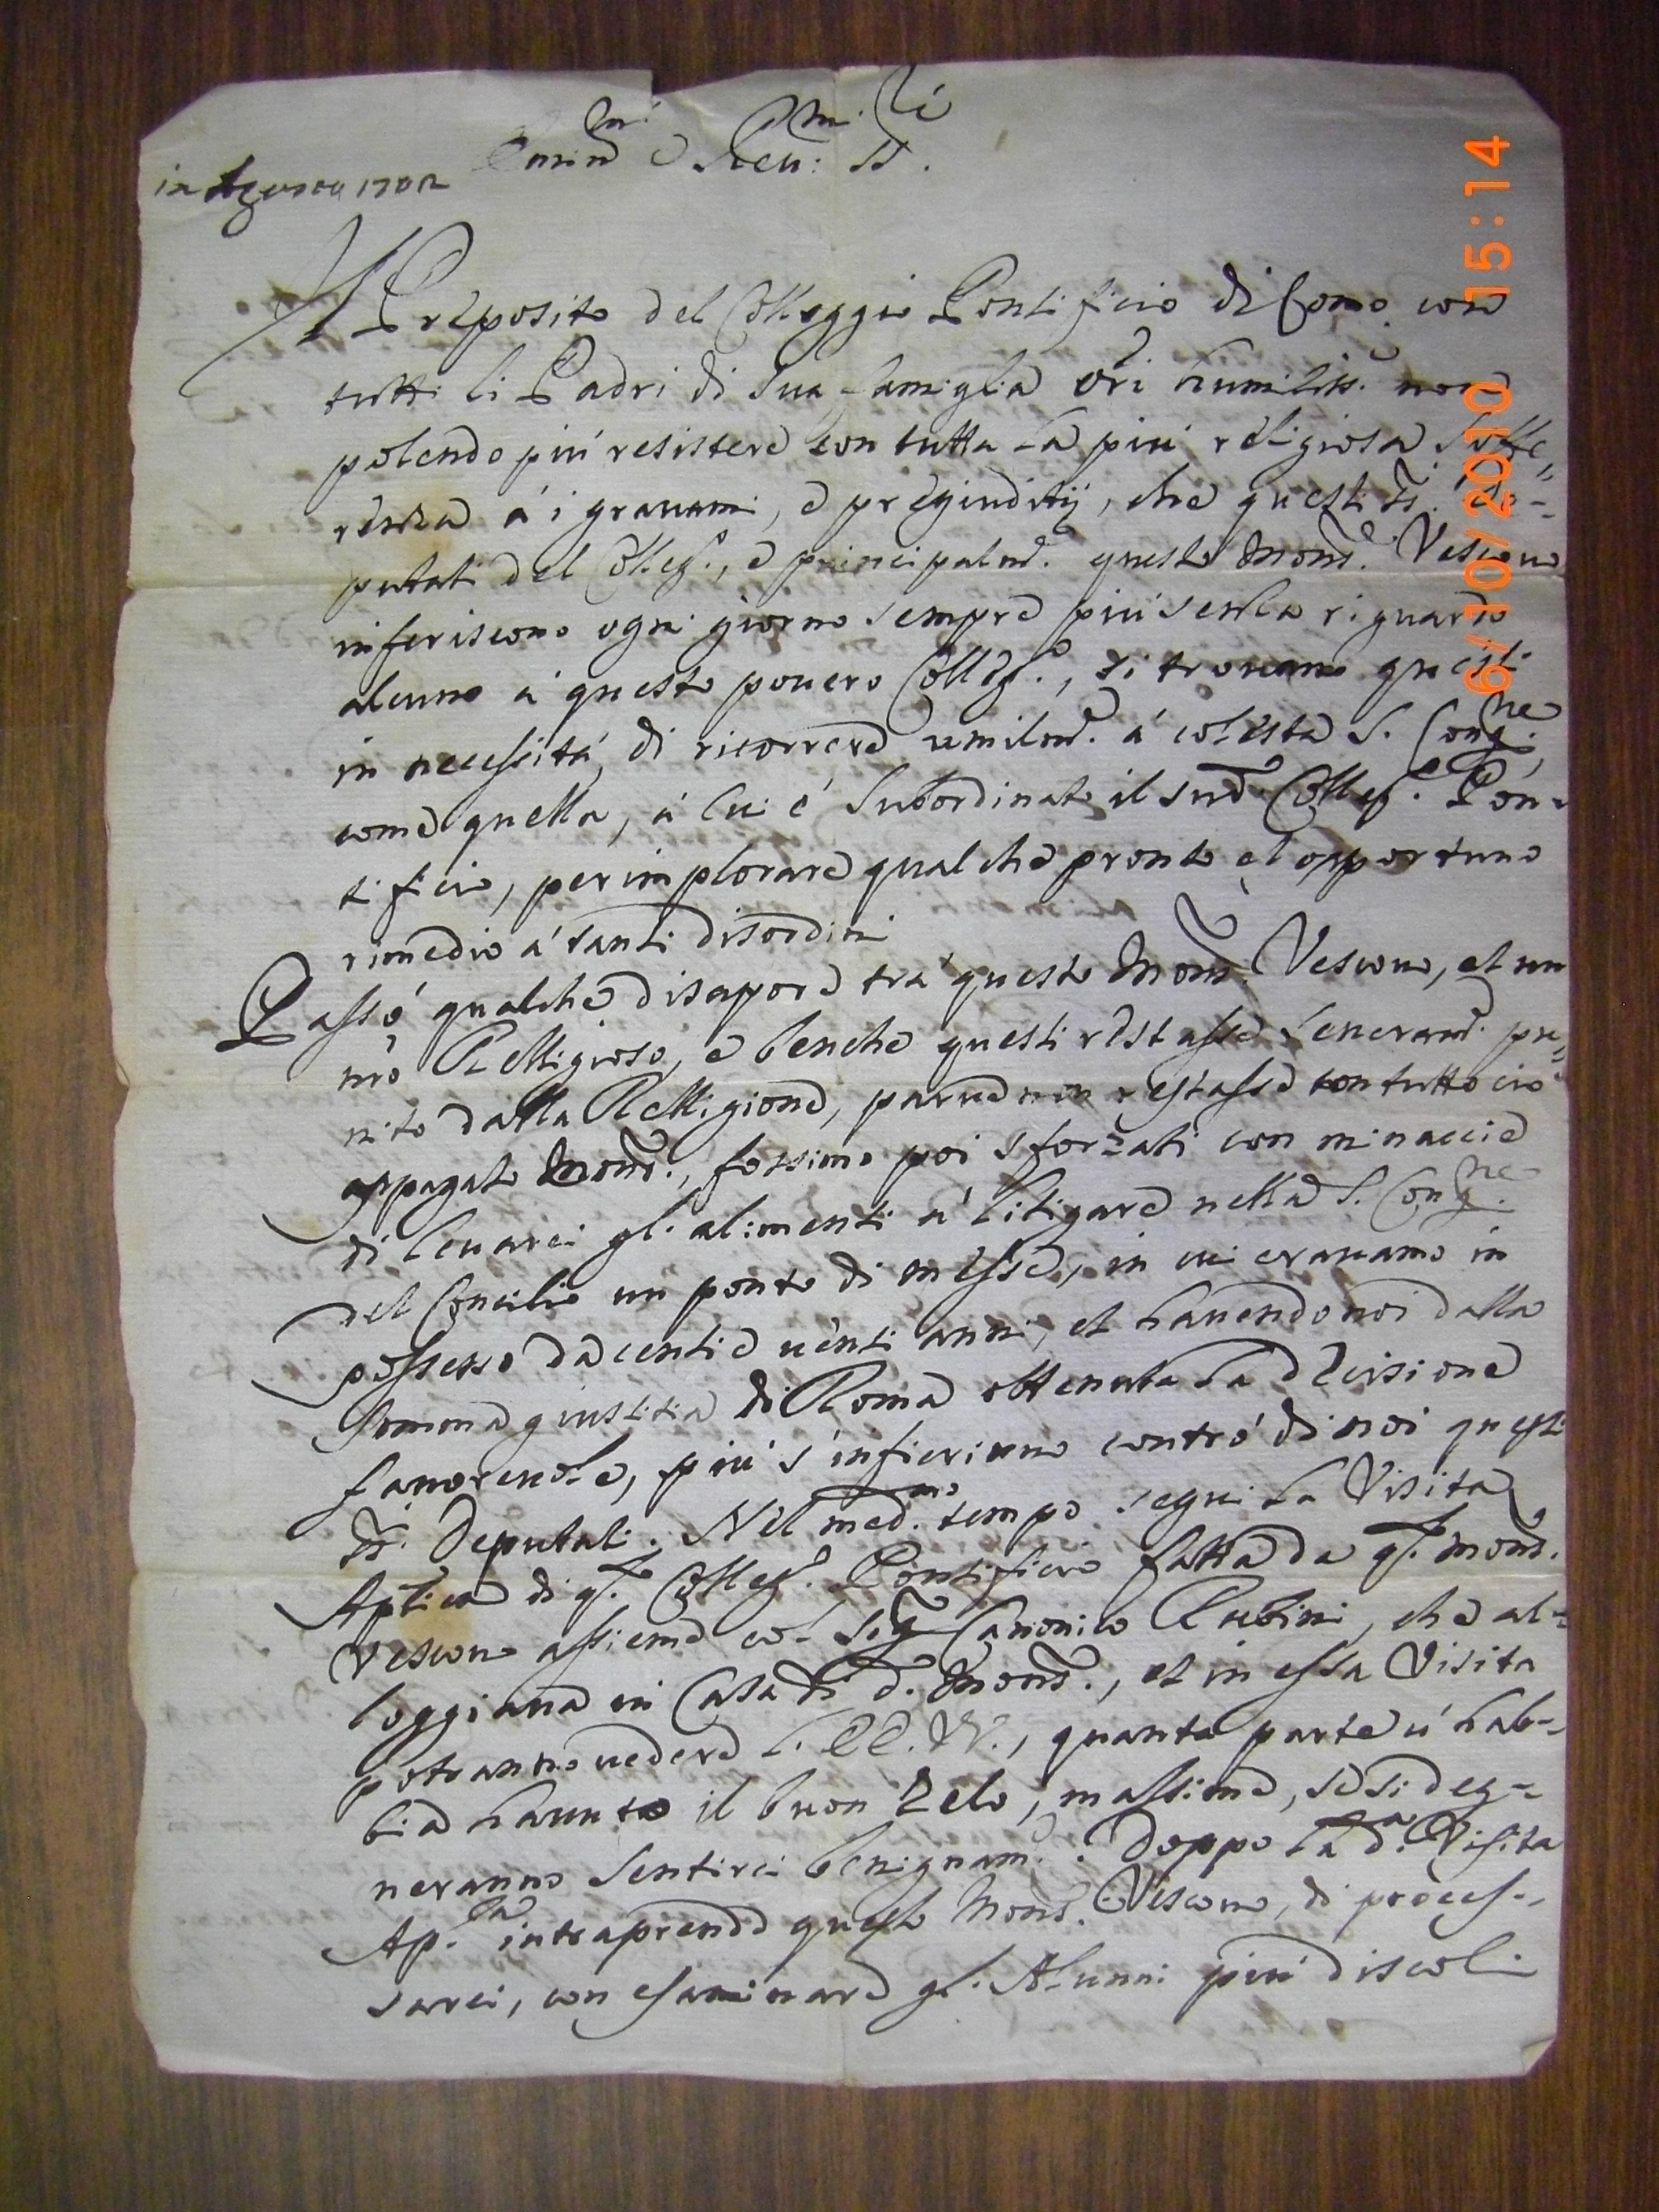 Emin.mi e Rev.mi SS.ri
in Agosto 1702
Il Preposito del Colleggio Pontificio di Como con
tutti li Padri di sua famiglia Ori humiliss. non
potendo più resistere con tutta la più religiosa soffe„
renza á i gravami, e pregiuditij, che questi SS.ri De-
putati del Colleg.o, e principalm.e questo Mons.r Vescovo
inferiscono ogni giorno sempre più senza riguardo
alcuno á questo povero Colleg.o, si trovano questi
in necessitá di ricorrere umilm.e á cotesta S. Cong.ne,
come quella, á cui é subordinato il sud.o Colleg.o Pon-
tificio, per implorare qualche pronto et opportuno
rimedio á tanti disordini
Passó qualche disapore trá questo Mons.r Vescovo, et un
nro Relligioso, e benche questi restasse severam.e pu„
nito dalla Relligione, parve non restasse con tutto ció
appagato Mons.r, fossimo poi sforzati con minaccie
di levarci gl'alimenti á litigare nella S. Cong.ne
del Concilio un ponto di messe, in cui eravamo in
possesso da cento e venti anni, et havendo noi dalla
somma giustitia di Roma ottenuta la decisione
favorevole, più s'infierirono contró di noi questi
SS.ri Deputati. Nel med.mo tempo seguì la Visita
Aplica di q.to Colleg.o Pontificio fatta da q.to Mons.r
Vescovo assieme col Sig.r Canonico Rubini, che al-
loggiava in Casa di d.o Mons.r, et in essa Visita
potranno vedere l'EE. VV., quanta parte v'hab-
bia havuto il buon zelo, massime, se si deg-
neranno sentirci benignam.e. Doppo la d.a Visita
Ap.ca intraprende questo Mons.r Vescovo, di proces-
sarci, con esaminare gl'Alunni più discoli
6/10/2010 15:14